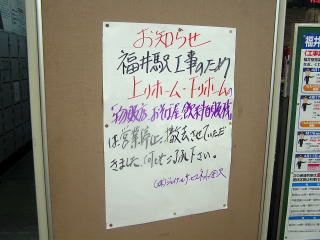 お知らせ
福井駅工事のため
上りホーム・下りホームの
売店、お弁当屋、飲料自販機
は営業停止、撤去させていただ
きました。何とぞご了承下さい。
(株)ジェイアールサービスネット金沢
福井